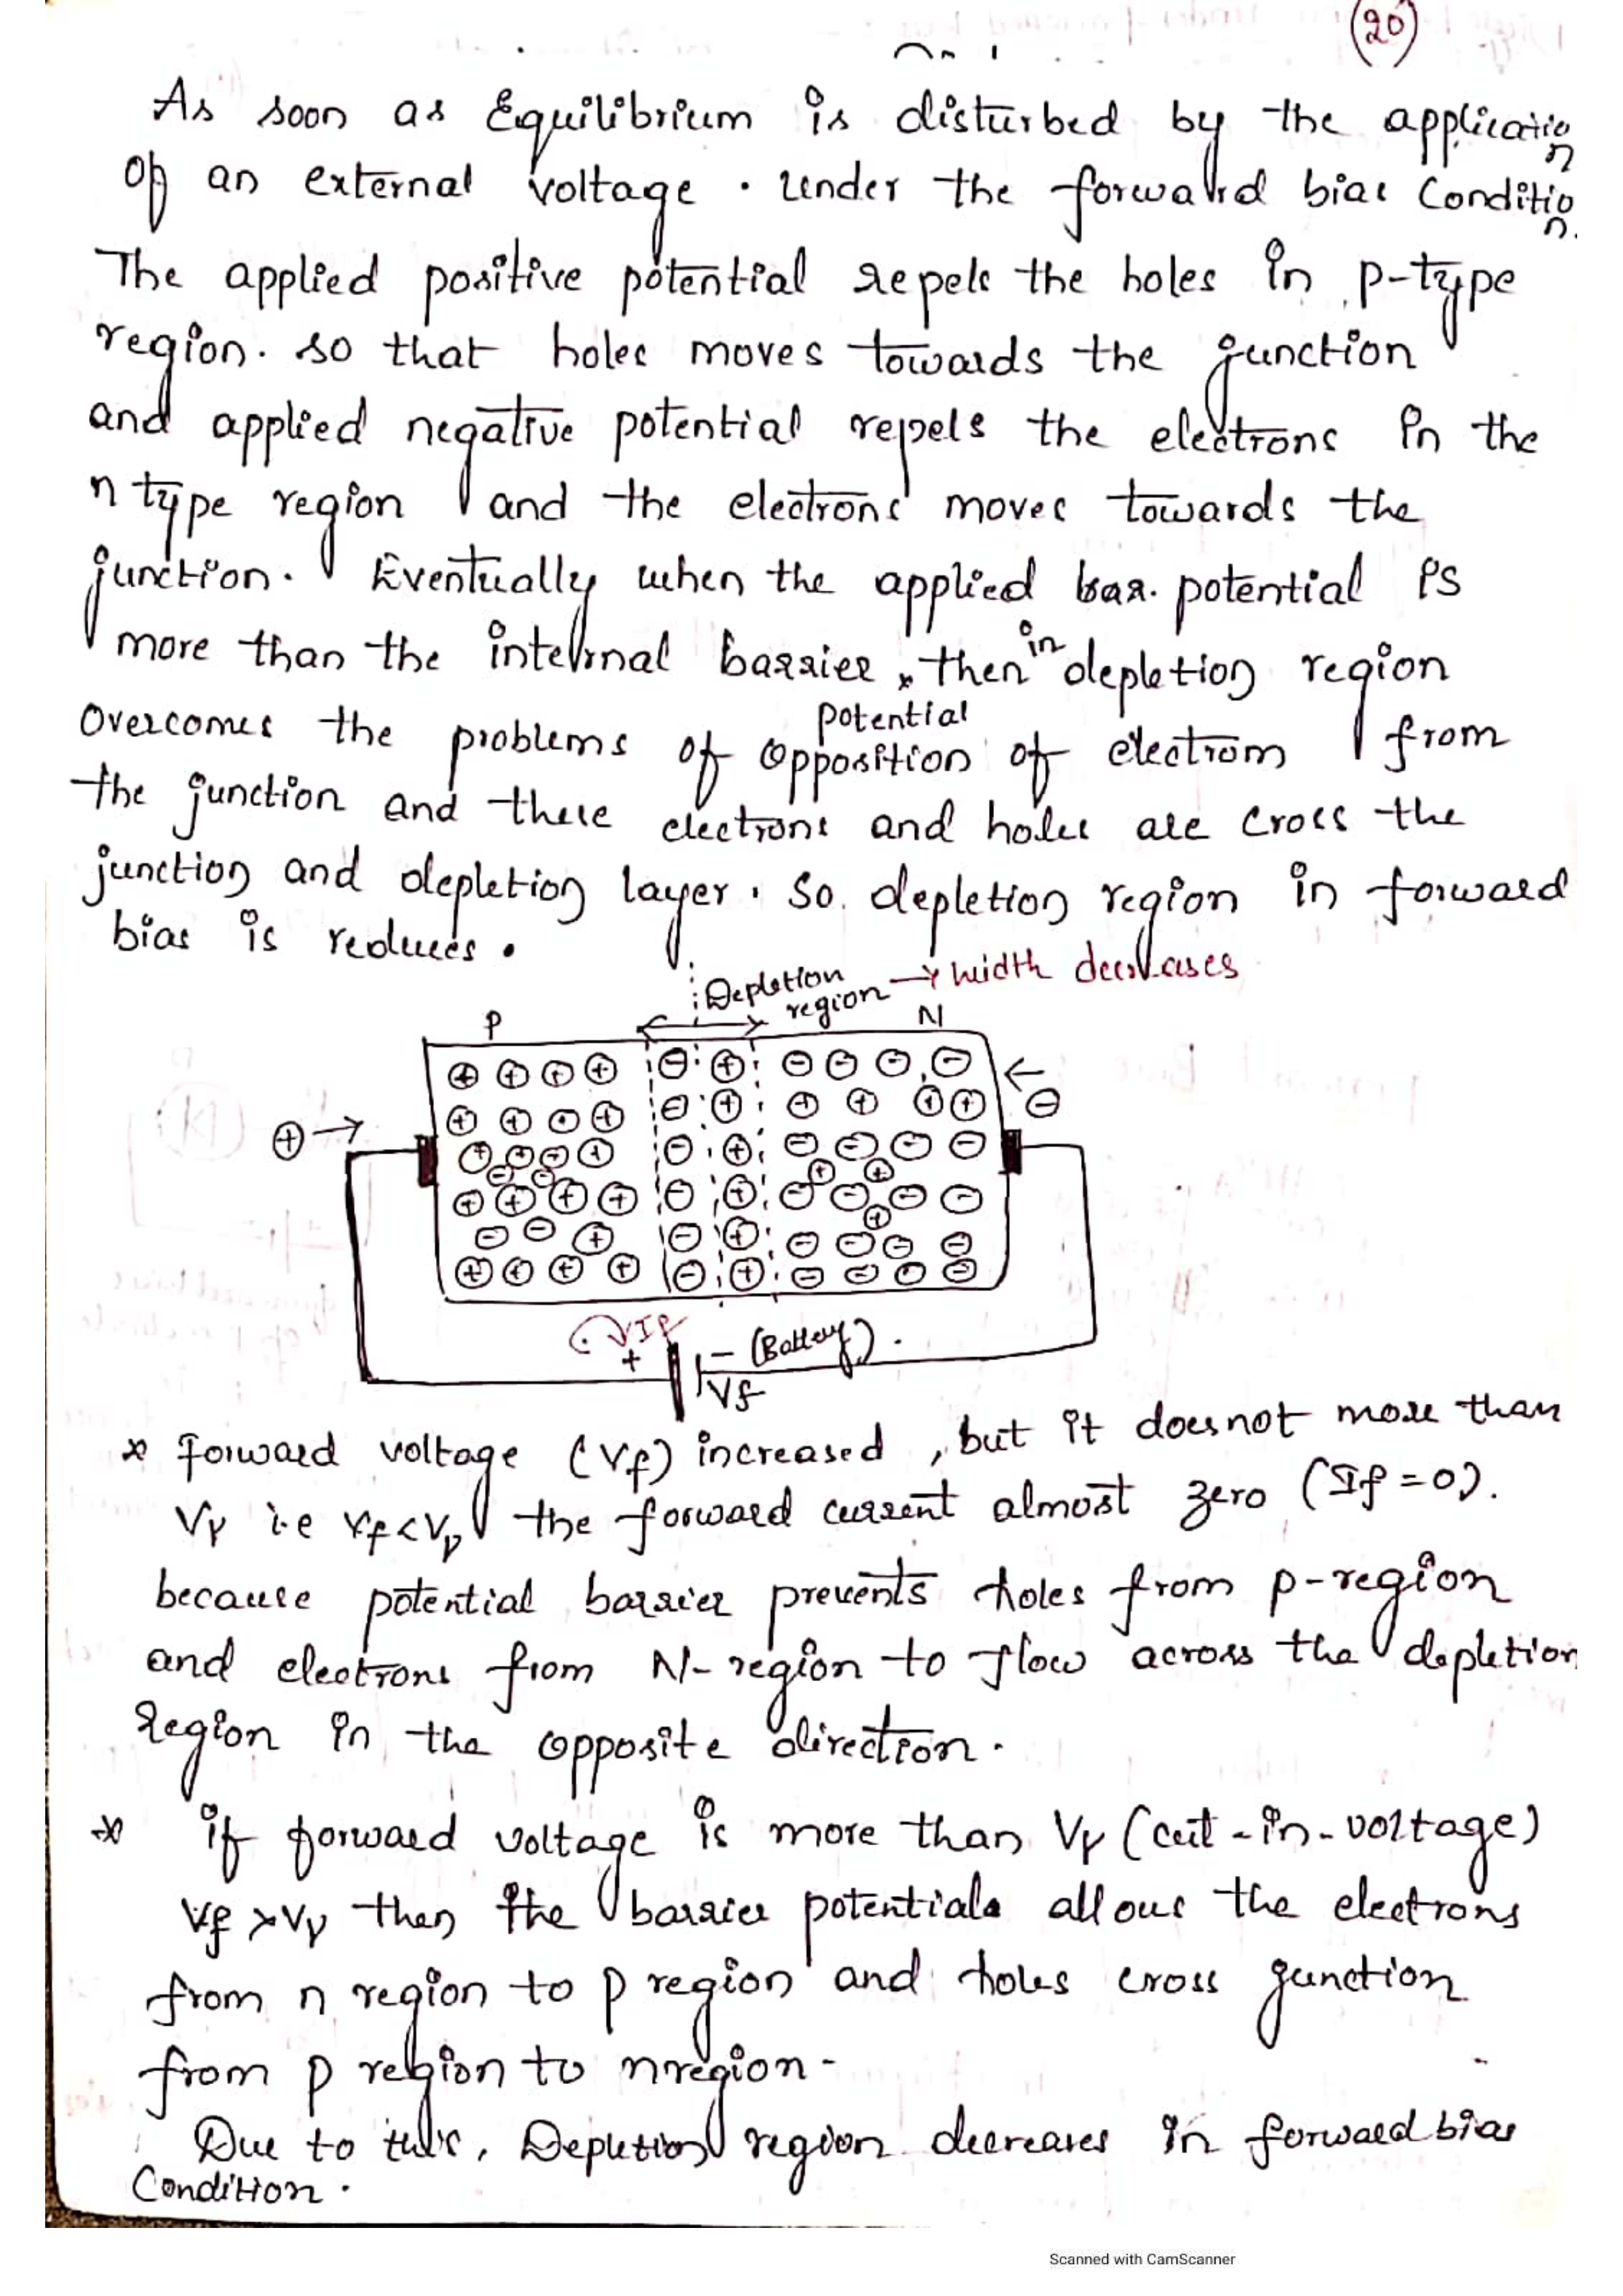 20
As soon as Equilibrium is disturbed by the application
of an external voltage . under the forward bias Condition.
The applied positive potential repels the holes in p-type
region. so that holes moves towards the junction
and applied negative potential repels the electrons in the
n type region and the electrons moves towards the
junction. Eventually when the applied bar. potential is
more than the internal barrier, then in depletion region
potential
overcomes the problems of opposition of electrom from
the junction and these electrons and holes are cross the
junction and depletion layer. So. depletion region in forward
bias is reduces.
Depletion region → width decreases
P N
+ → ← -
VIP
+ - (Battery).
Vf
* forward voltage (Vf) increased , but it does not more than
Vγ i.e Vf<Vγ the forward current almost zero (If=0).
because potential barrier prevents holes from p-region
and electrons from N-region to flow across the depletion
Region in the opposite direction.
* if forward voltage is more than Vγ (cut-in-voltage)
Vf >Vγ then the barrier potentials allous the electrons
from n region to p region and holes cross junction
from p region to n region-
Due to this, Depletion region decreases in forward bias
Condition.
Scanned with CamScanner